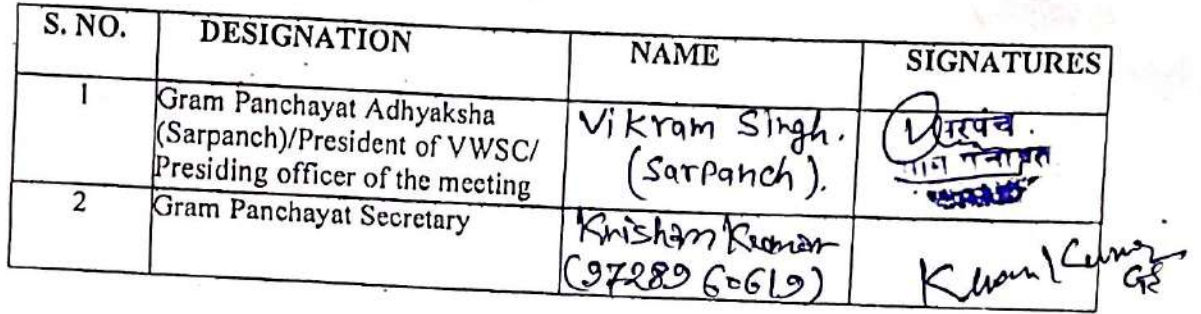 S. NO. DESIGNATION NAME SIGNATURES
1 Gram Panchayat Adhyaksha
(Sarpanch)/President of VWSC/
Presiding officer of the meeting
Vikram Singh.
(Sarpanch).
सरपंच
ग्राम पंचायत
2 Gram Panchayat Secretary
Krishan Kumar
(97289 60619)
GS